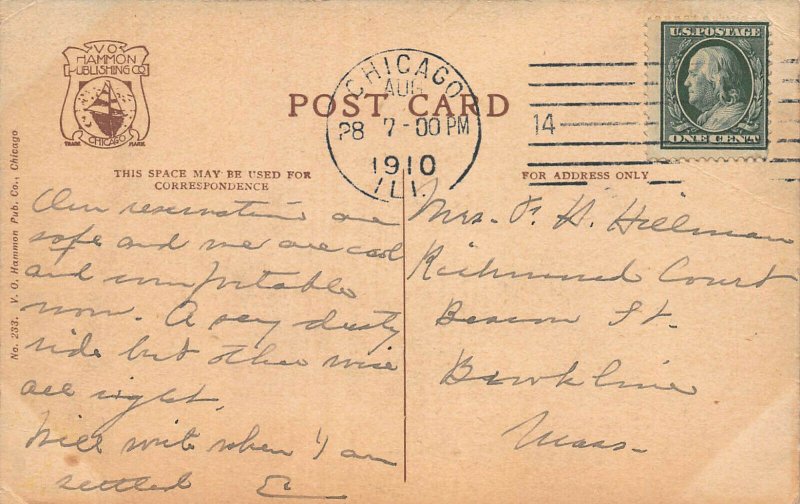 V O
HAMMON
PUBLISHING CO
CHICAGO
TRADE MARK
POST CARD
CHICAGO
AUG
28 7-00 PM
1910
ILL.
14
U.S. POSTAGE
ONE CENT
THIS SPACE MAY BE USED FOR
CORRESPONDENCE
FOR ADDRESS ONLY
No. 233. V. O. Hammon Pub. Co., Chicago
Our reservations are
safe and we are cool
and comfortable
now. A very dusty
ride but other wise
all right.
Will write when I am
settled E
Mrs. F. H. Hillman
Richmond Court
Beacon St.
Brookline
Mass.